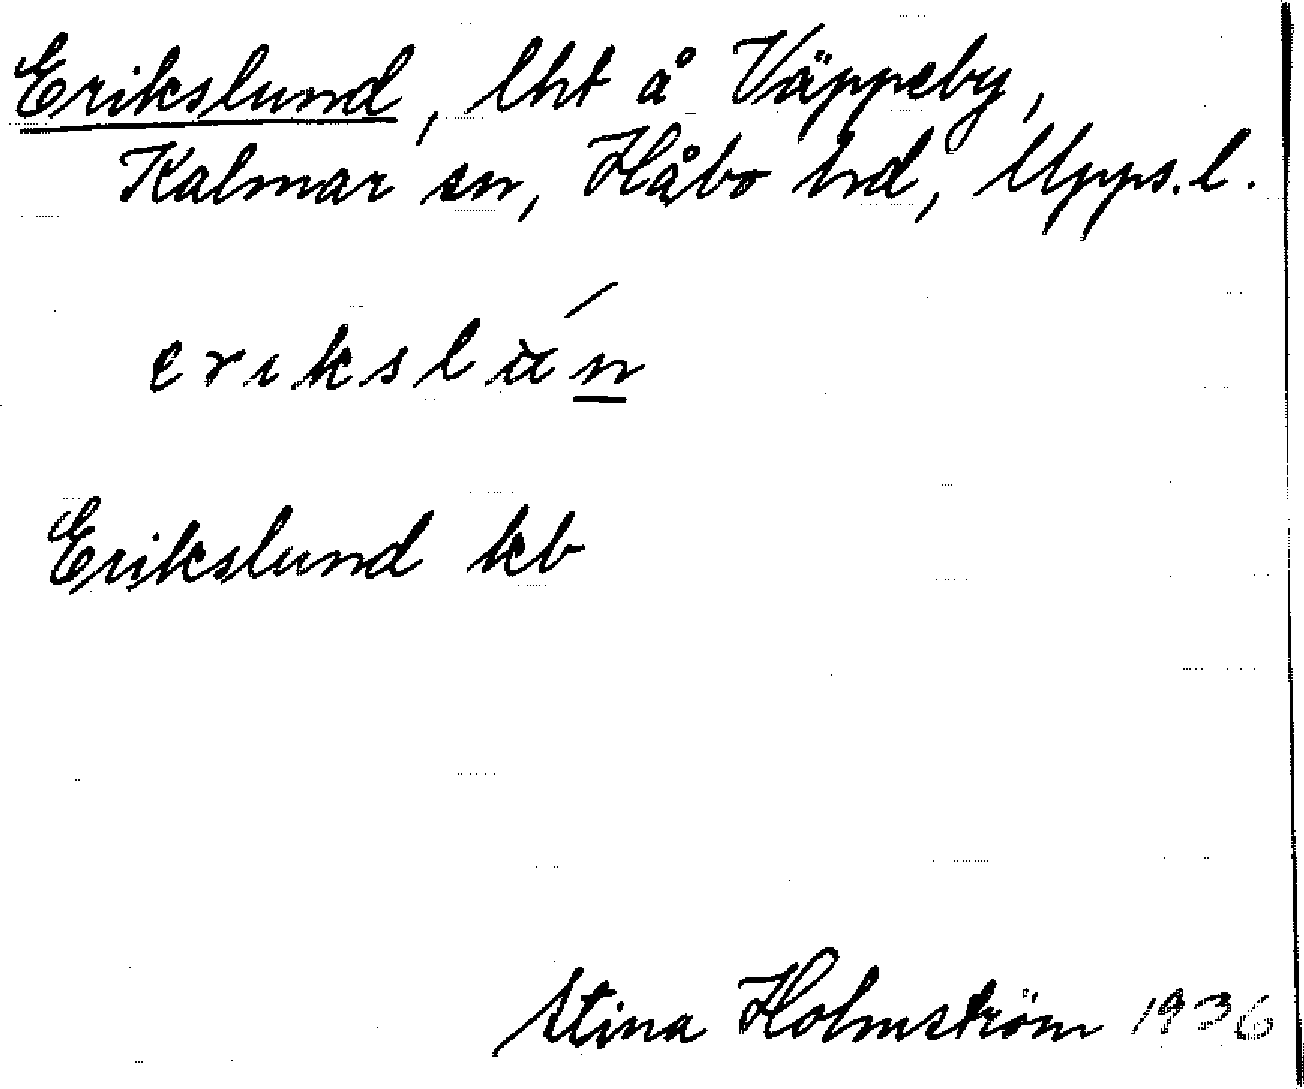 Erikslund, lht å Väppeby,
Kalmar sn, Håbo hd, Upps.l.
Erikslund kb
Stina Holmström 1936